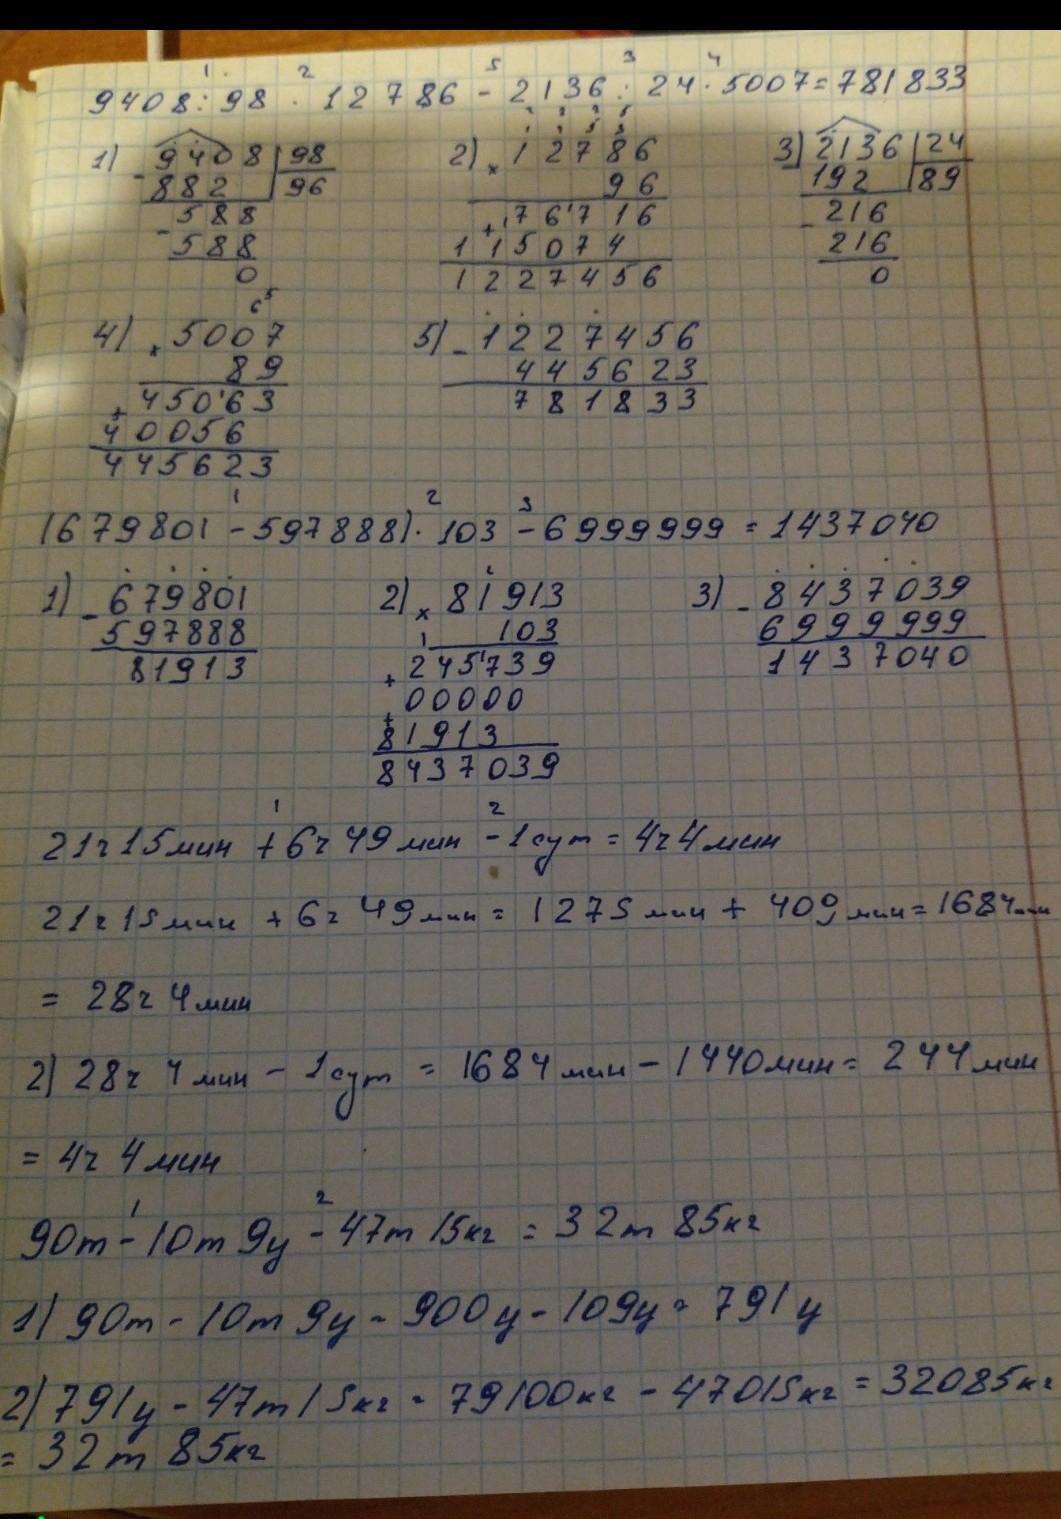 9408 : 98 · 12786 - 2136 : 24 · 5007 = 781833
1) 9408 | 98 2) 12786 3) 2136 | 24
- 882 | 96 × 96 - 192 | 89
- 588 + 76716 - 216
588 115074 216
0 1227456 0
4) × 5007 5) - 1227456
89 445623
+ 45063 781833
40056
445623
(679801 - 597888) · 103 - 6999999 = 1437040
1) - 679801 2) × 81913 3) - 8437039
597888 103 6999999
81913 + 245739 1437040
+ 00000
81913
8437039
21ч 15мин + 6ч 49мин - 1сут = 4ч 4мин
21ч 15мин + 6ч 49мин = 1275мин + 409мин = 1684мин
= 28ч 4мин
2) 28ч 4мин - 1сут = 1684мин - 1440мин = 244мин
= 4ч 4мин
90т - 10т 9ц - 47т 15кг = 32т 85кг
1) 90т - 10т 9ц = 900ц - 109ц = 791ц
2) 791ц - 47т 15кг = 79100кг - 47015кг = 32085кг
= 32т 85кг